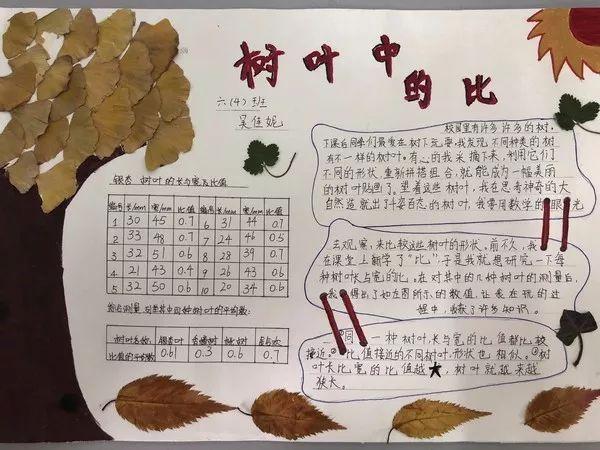 树叶中
的比
六(4)班
吴佳妮
银杏 树叶的长与宽及比值
编号 长/mm 宽/mm 比值 编号 长/mm 宽/mm 比值
1 30 45 0.7 6 31 44 0.7
2 33 48 0.7 7 24 46 0.5
3 32 51 0.6 8 28 39 0.7
4 21 43 0.4 9 26 43 0.6
5 32 50 0.6 10 20 34 0.6
树叶名称
比值的平均数 0.61 0.3 0.6 0.7
校园里有许多许多的树。
下课后同学们最爱在树下玩耍。我发现不同种类的树
有不一样的树叶。有心的我采摘下来,利用它们
不同的形状,重新拼搭组合,就能成为一幅美丽
的树叶贴画了。望着这些树叶,我在思考神奇的大
自然造就出了千姿百态的树叶,我要用数学的眼光
去观察,来比较这些树叶的形状。前不久,我
在课堂上新学了“比”,于是我就想研究一下每
种树叶长与宽的比。在对其中的几种树叶的测量后,
得出了如左图所示的数值,让我在玩的过
程中,我获了许多知识。
同一种树叶,长与宽的比值都比较
接近。②比值接近的不同树叶,形状也相似。③树
叶长比宽的比值越大,树叶就越来越
狭长。